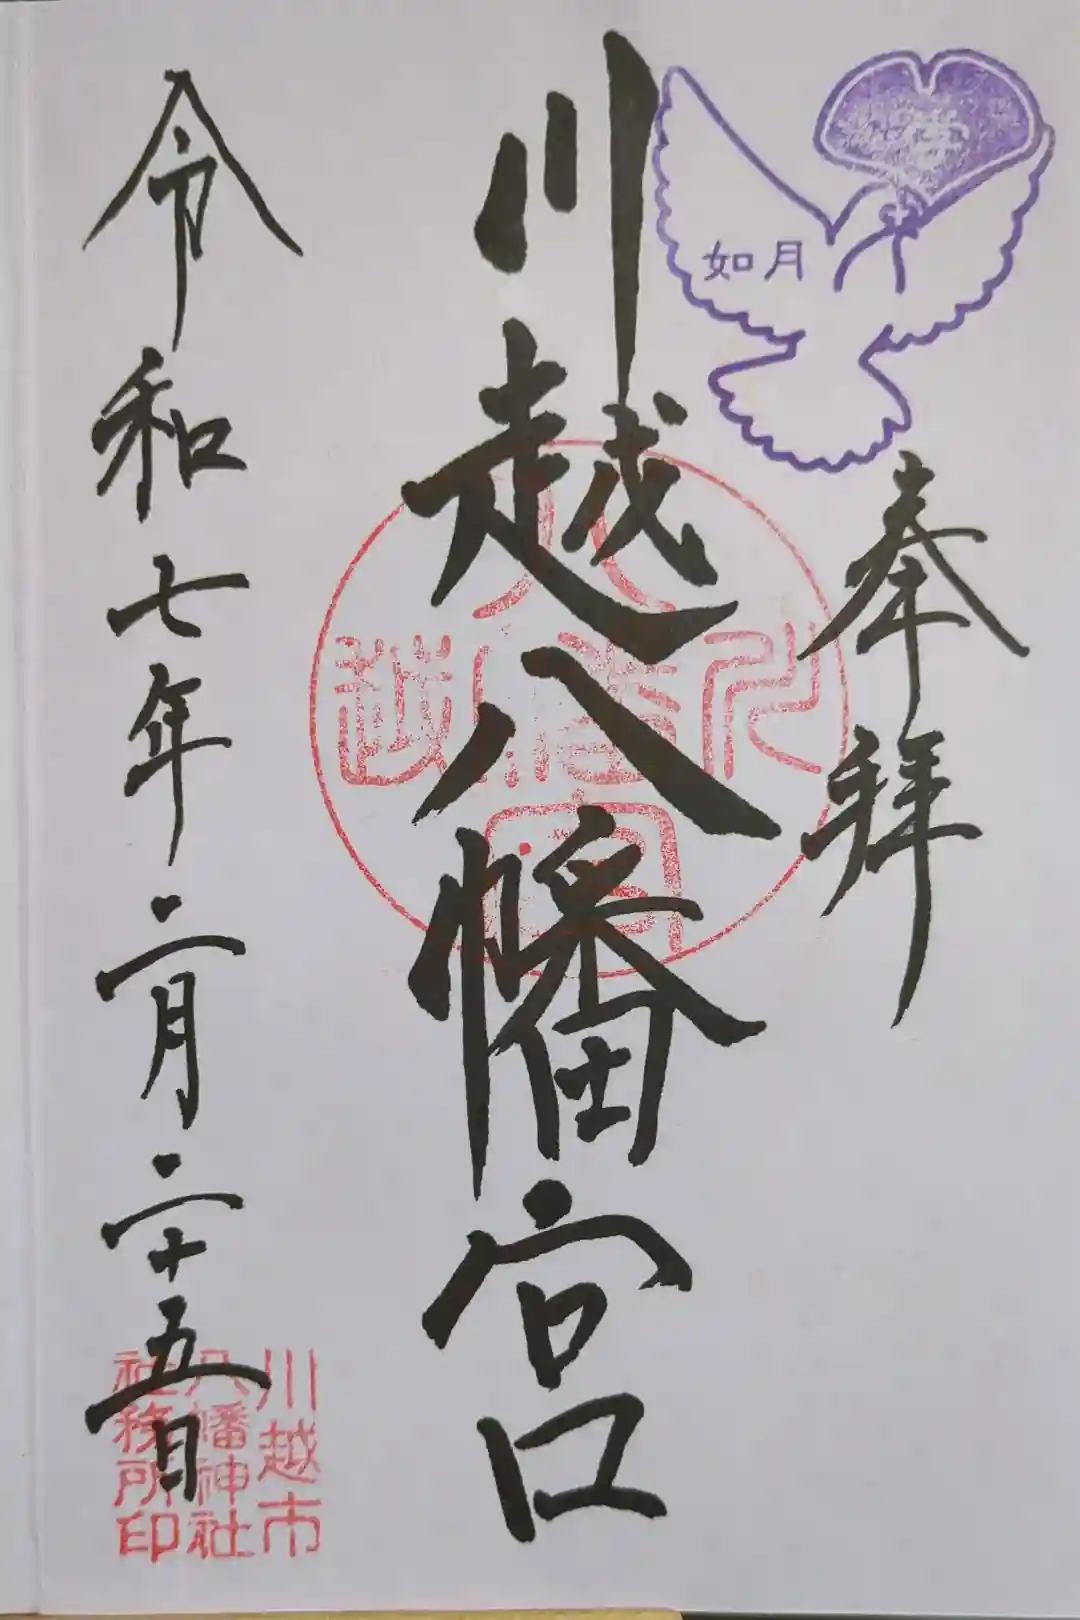 如月
奉拝
川越八幡宮
令和七年二月二十五日
川越市
八幡神社
社務所印